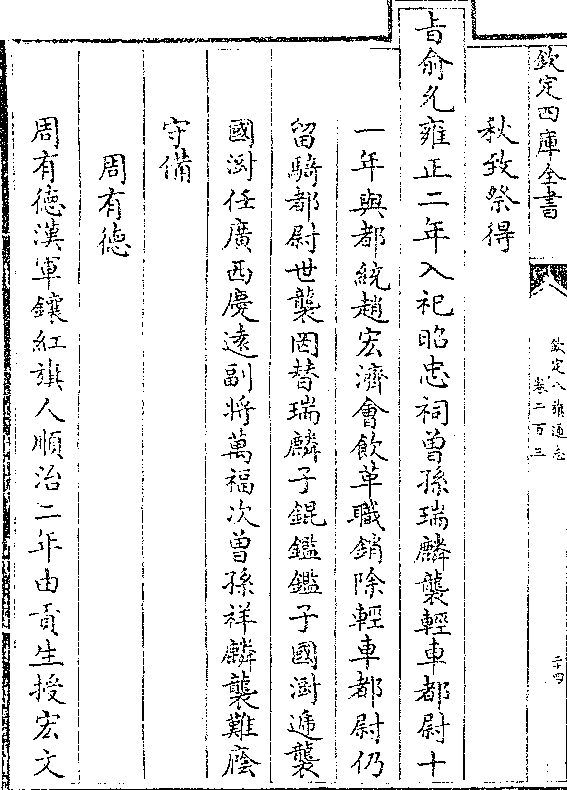 欽定四庫全書
欽定八旗通志
卷二百三
二十四
秋致祭得
旨俞允雍正二年入祀昭忠祠曾孫瑞麟襲輕車都尉十
一年與都統趙宏濟會飲革職銷除輕車都尉仍
留騎都尉世襲罔替瑞麟子錕鑑鑑子國澍遞襲
國澍任廣西慶遠副將萬福次曾孫祥麟襲難廕
守備
周有德
周有德漢軍鑲紅旗人順治二年由貢生授宏文